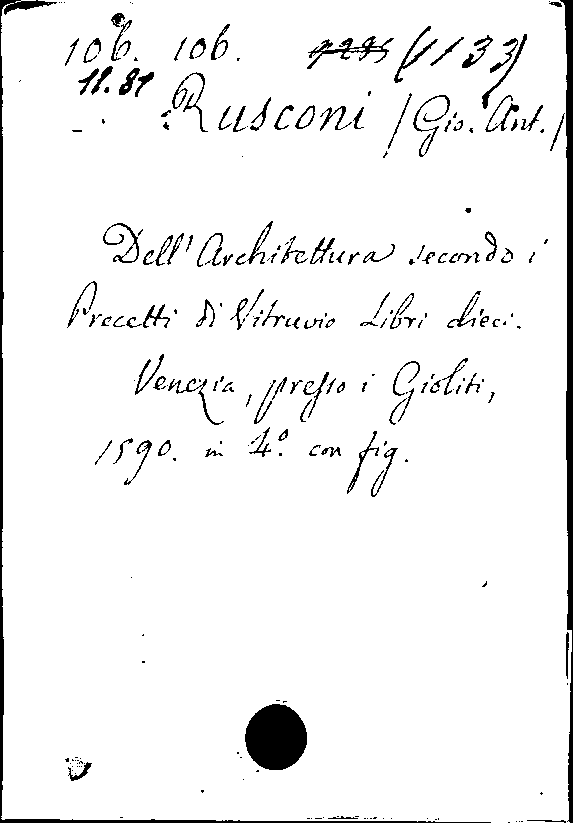 106. 106. (1133)
11.81
Rusconi /Gio. Ant./
Dell'Architettura secondo i
Precetti di Vitruvio Libri dieci.
Venezia, presso i Gioliti,
1590. in 4.º con fig.